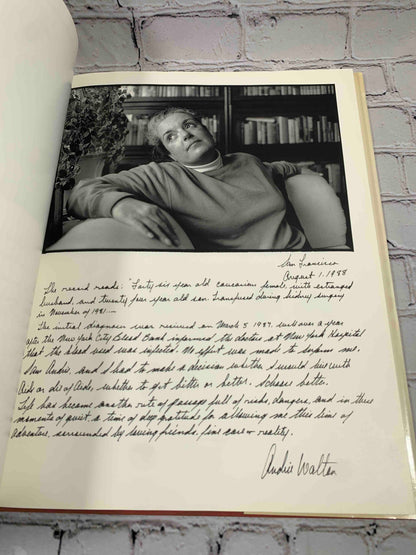 San Francisco
August 1, 1988
The record reads: "Forty six year old caucasian female with estranged
husband, and twenty four year old son, transfused during kidney surgery
in November of 1981....
The initial diagnosis was received on March 5, 1987, well over a year
after the New York City Blood Bank informed the doctors at New York Hospital
that the blood used was infected. No effort was made to inform me.
I'm Andie, and I had to make a decision whether I would live with
Aids or die of Aids, whether to get bitter or better. I chose better.
Life has become another rite of passage full of risks, dangers, and in these
moments of quiet a time of deep gratitude for allowing me this time of
adventure, surrounded by loving friends, fine care & reality.
Andie Walton